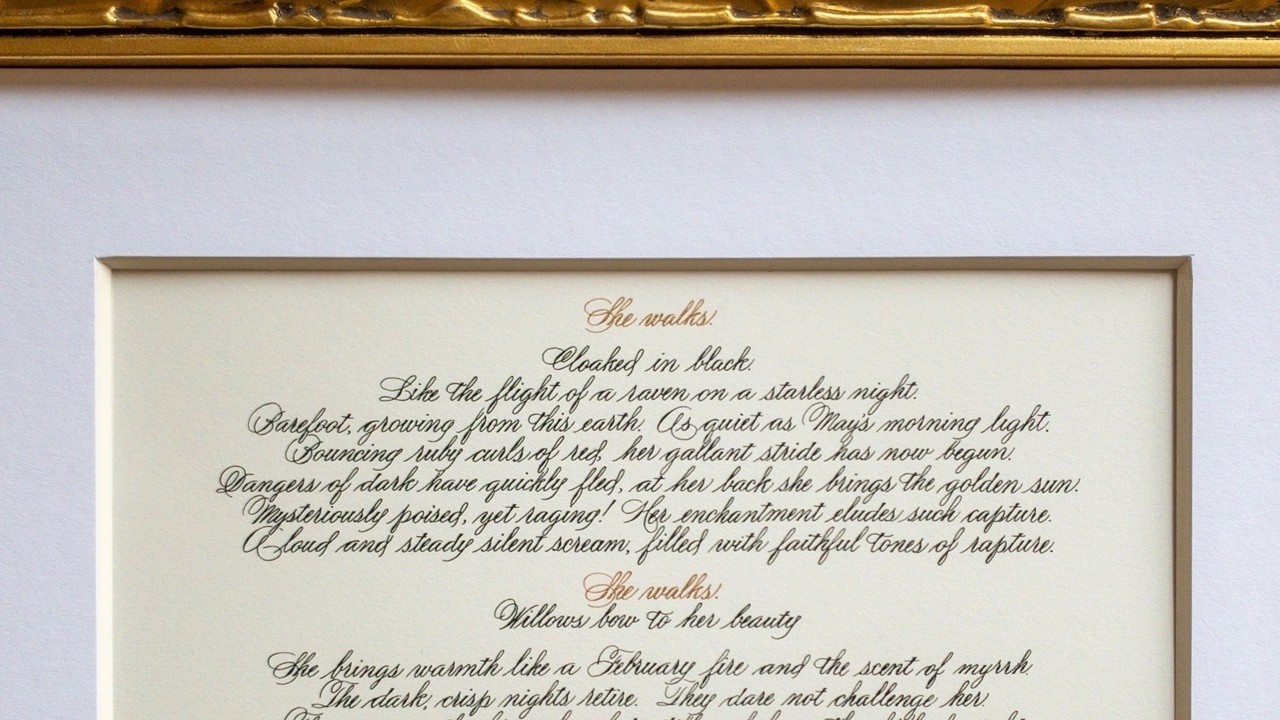 She walks.
Cloaked in black.
Like the flight of a raven on a starless night.
Barefoot, growing from this earth. As quiet as May's morning light.
Bouncing ruby curls of red, her gallant stride has now begun.
Dangers of dark have quickly fled, at her back she brings the golden sun.
Mysteriously poised, yet raging! Her enchantment eludes such capture.
A loud and steady silent scream, filled with faithful tones of rapture.
She walks.
Willows bow to her beauty
She brings warmth like a February fire and the scent of myrrh.
The dark, crisp nights retire. They dare not challenge her.